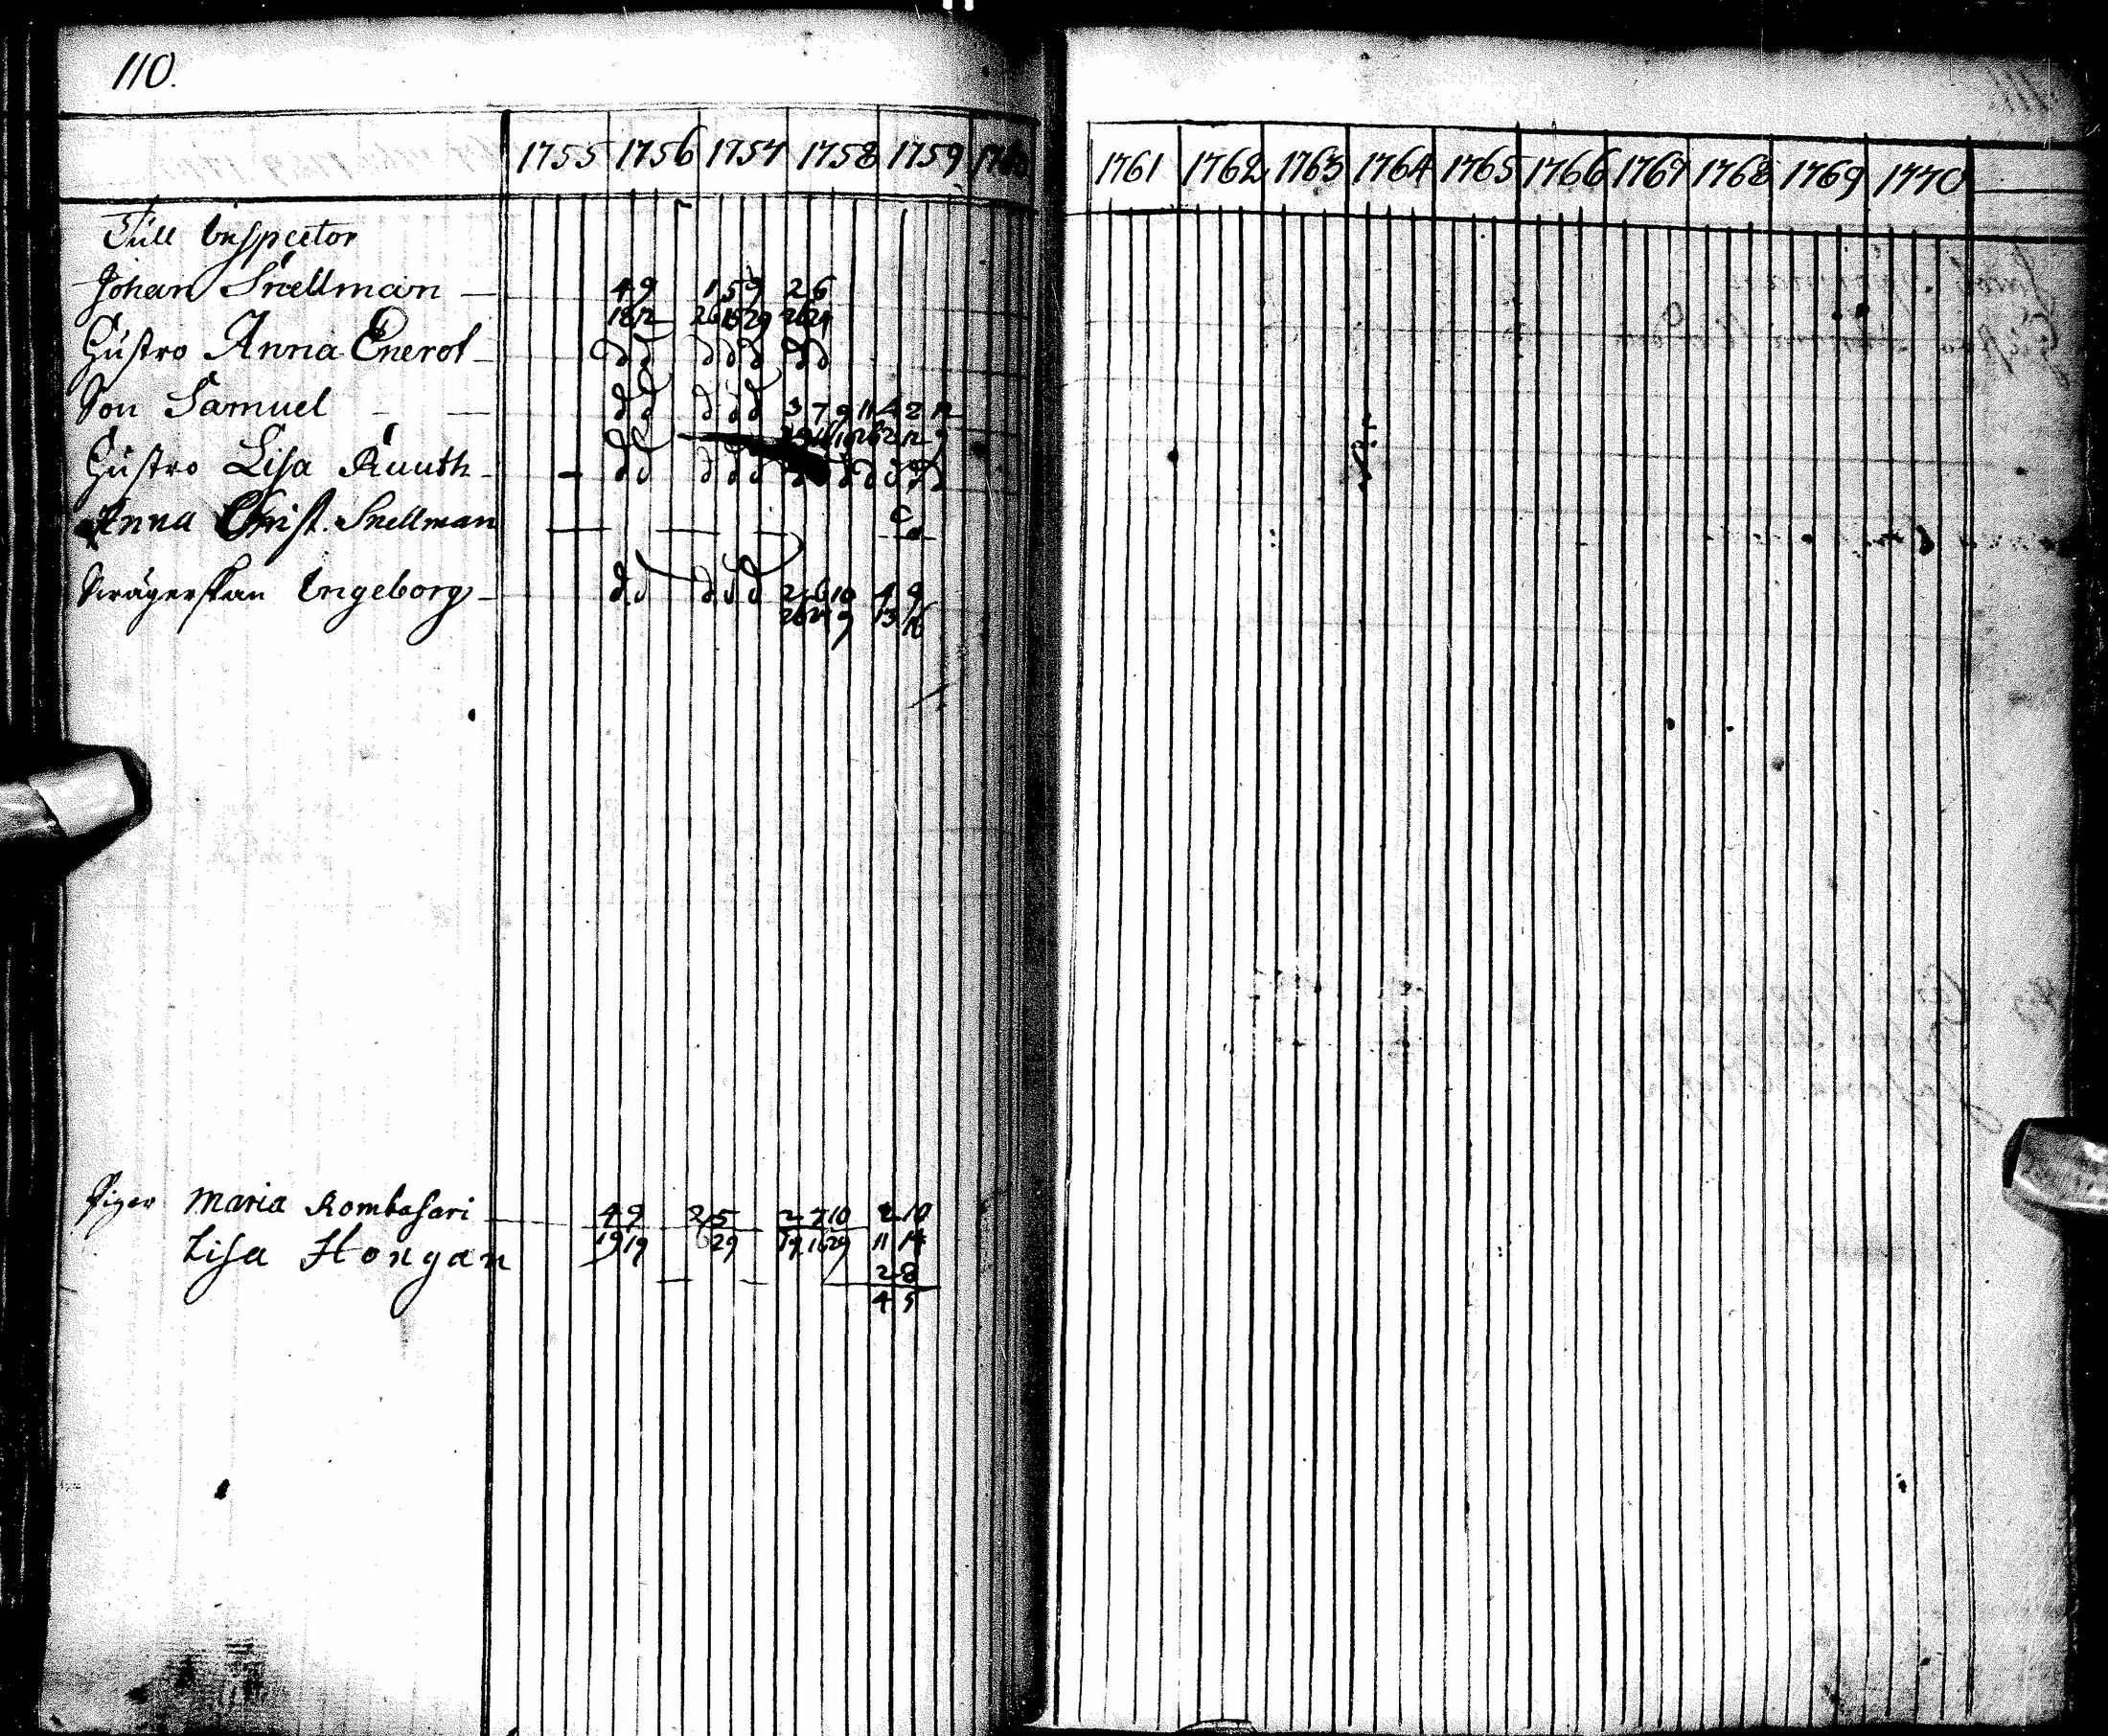 110.
1755 1756 1757 1758 1759 1760
1761 1762 1763 1764 1765 1766 1767 1768 1769 1770
Tull Inspector
Johan Snellman 4 9 1 5 9 2 6
18 12 26 18 29 26 29
Hustro Anna Enerot d d d d d d d
Son Samuel d d d d d 3 7 9 11 4 2 12
Hustro Lisa Ruuth d d d d d d d d d
Anna Christ. Snellman
Swägerskan Ingeborg d d d d d 2 6 10 4 9
26 29 9 13 16
Pigor Maria Rombasari 4 9 2 5 2 7 10 2 10
19 19 6 29 19 16 29 11 14
Lisa Hongan 2 8
4 5